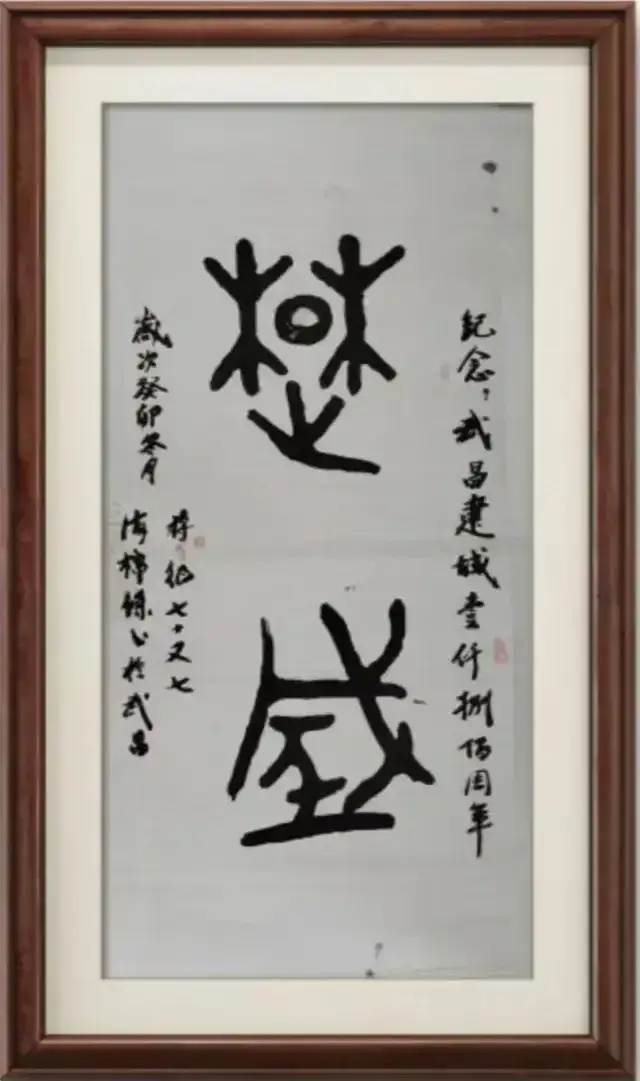 紀念武昌建城壹仟捌佰周年
楚
歲次癸卯冬月
七十又七
於武昌